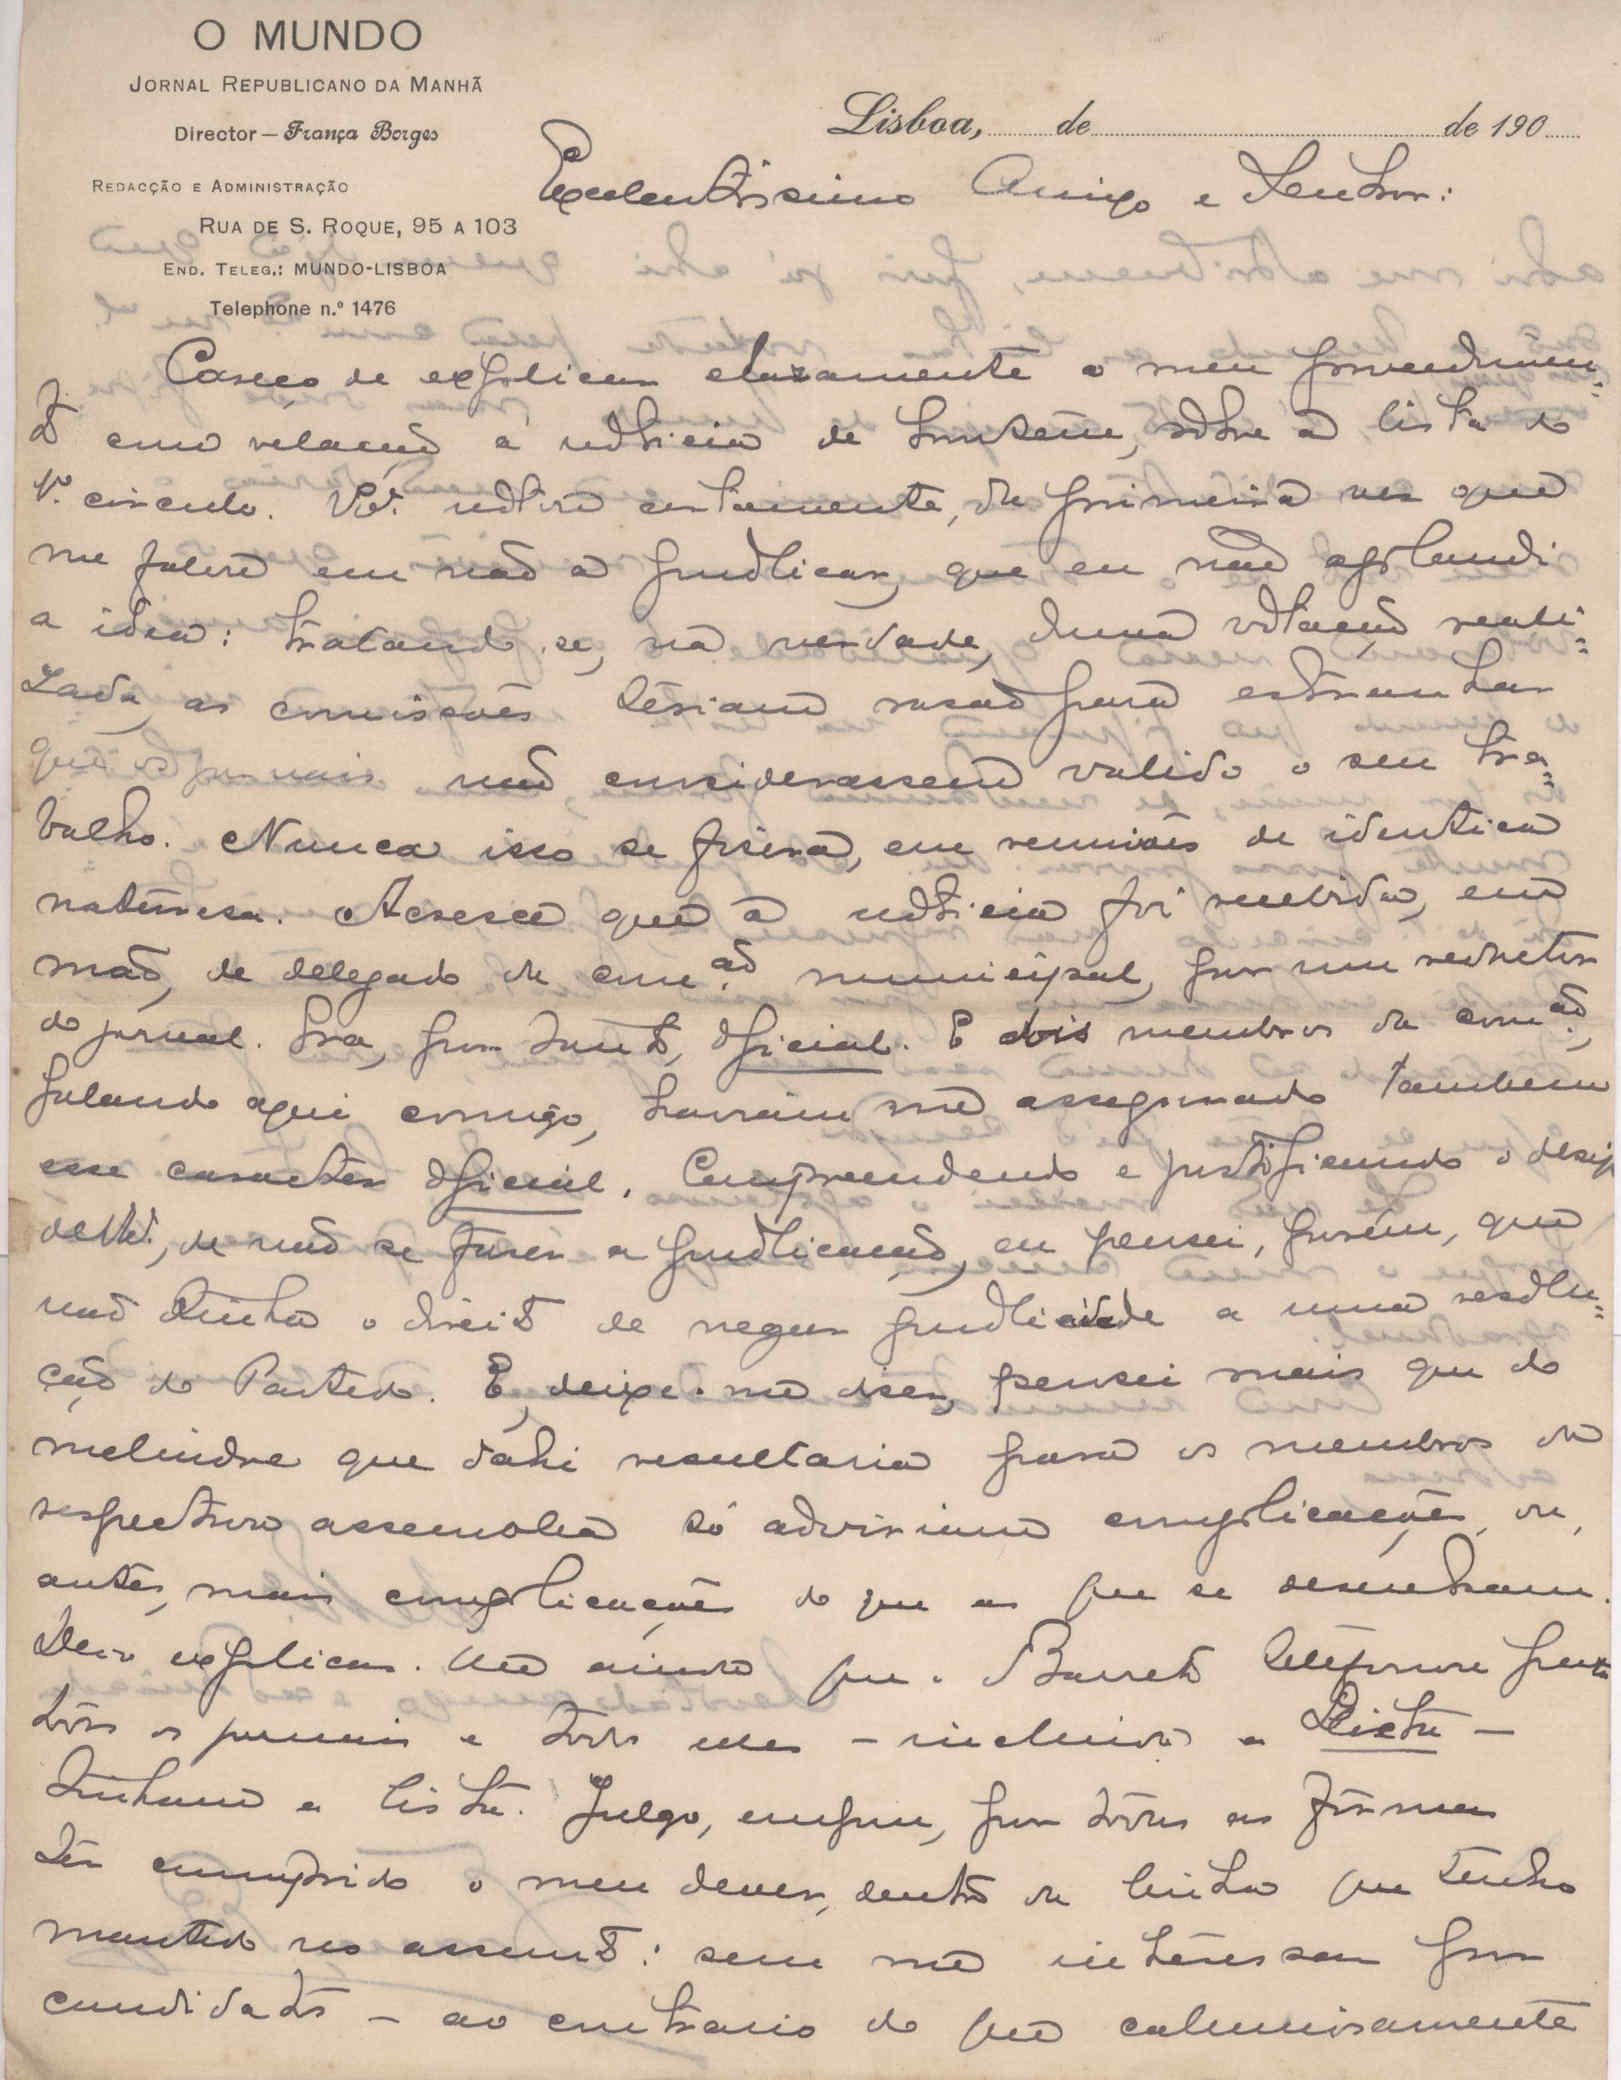 O MUNDO
JORNAL REPUBLICANO DA MANHÃ
Director — França Borges
REDACÇÃO E ADMINISTRAÇÃO
RUA DE S. ROQUE, 95 A 103
END. TELEG.: MUNDO-LISBOA
Telephone n.º 1476
Lisboa, de de 190
Excelentissimo Amigo e Senhor:
Careço de explicar claramente o meu procedimen-
to com relação á noticia de hontem, sobre a lista do
1.º circulo. V. notou certamente, da primeira vez que
me falou em não a publicar, que eu não aplaudi
a ideia: tratando-se, na verdade, duma votação reali-
zada, as comissões teriam rasão para estranhar
que os jornais não considerassem valido o seu tra-
balho. Nunca isso se fisera, em reuniões de identica
naturesa. Acresce que a noticia foi recebida, em
mão, de delegado da com.ão municipal, por um redactor
do jornal. Era, por tanto, oficial. E dois membros da com.ão,
falando aqui comigo, haviam-me assegurado tambem
esse caracter oficial. Compreendendo e justificando o desejo
de V., de não se faser a publicação, eu pensei, porém, que
não tinha o direito de negar publicidade a uma resolu-
ção do Partido. E, deixe-me diser, pensei mais que do
melindre que dahi resultaria para os membros da
respectiva assembleia só adviriam complicações, ou,
antes, mais complicações do que as que se desenham.
Devo explicar-lhe ainda que o Barreto telefonou para
todos os jornais e todos eles — incluindo a Lucta —
tinham a lista. Julgo, emfim, por todas as fórmas
ter cumprido o meu dever, dentro da linha que tenho
mantido no assunto: sem me interessar por
candidatos — ao contrario do que caluniosamente